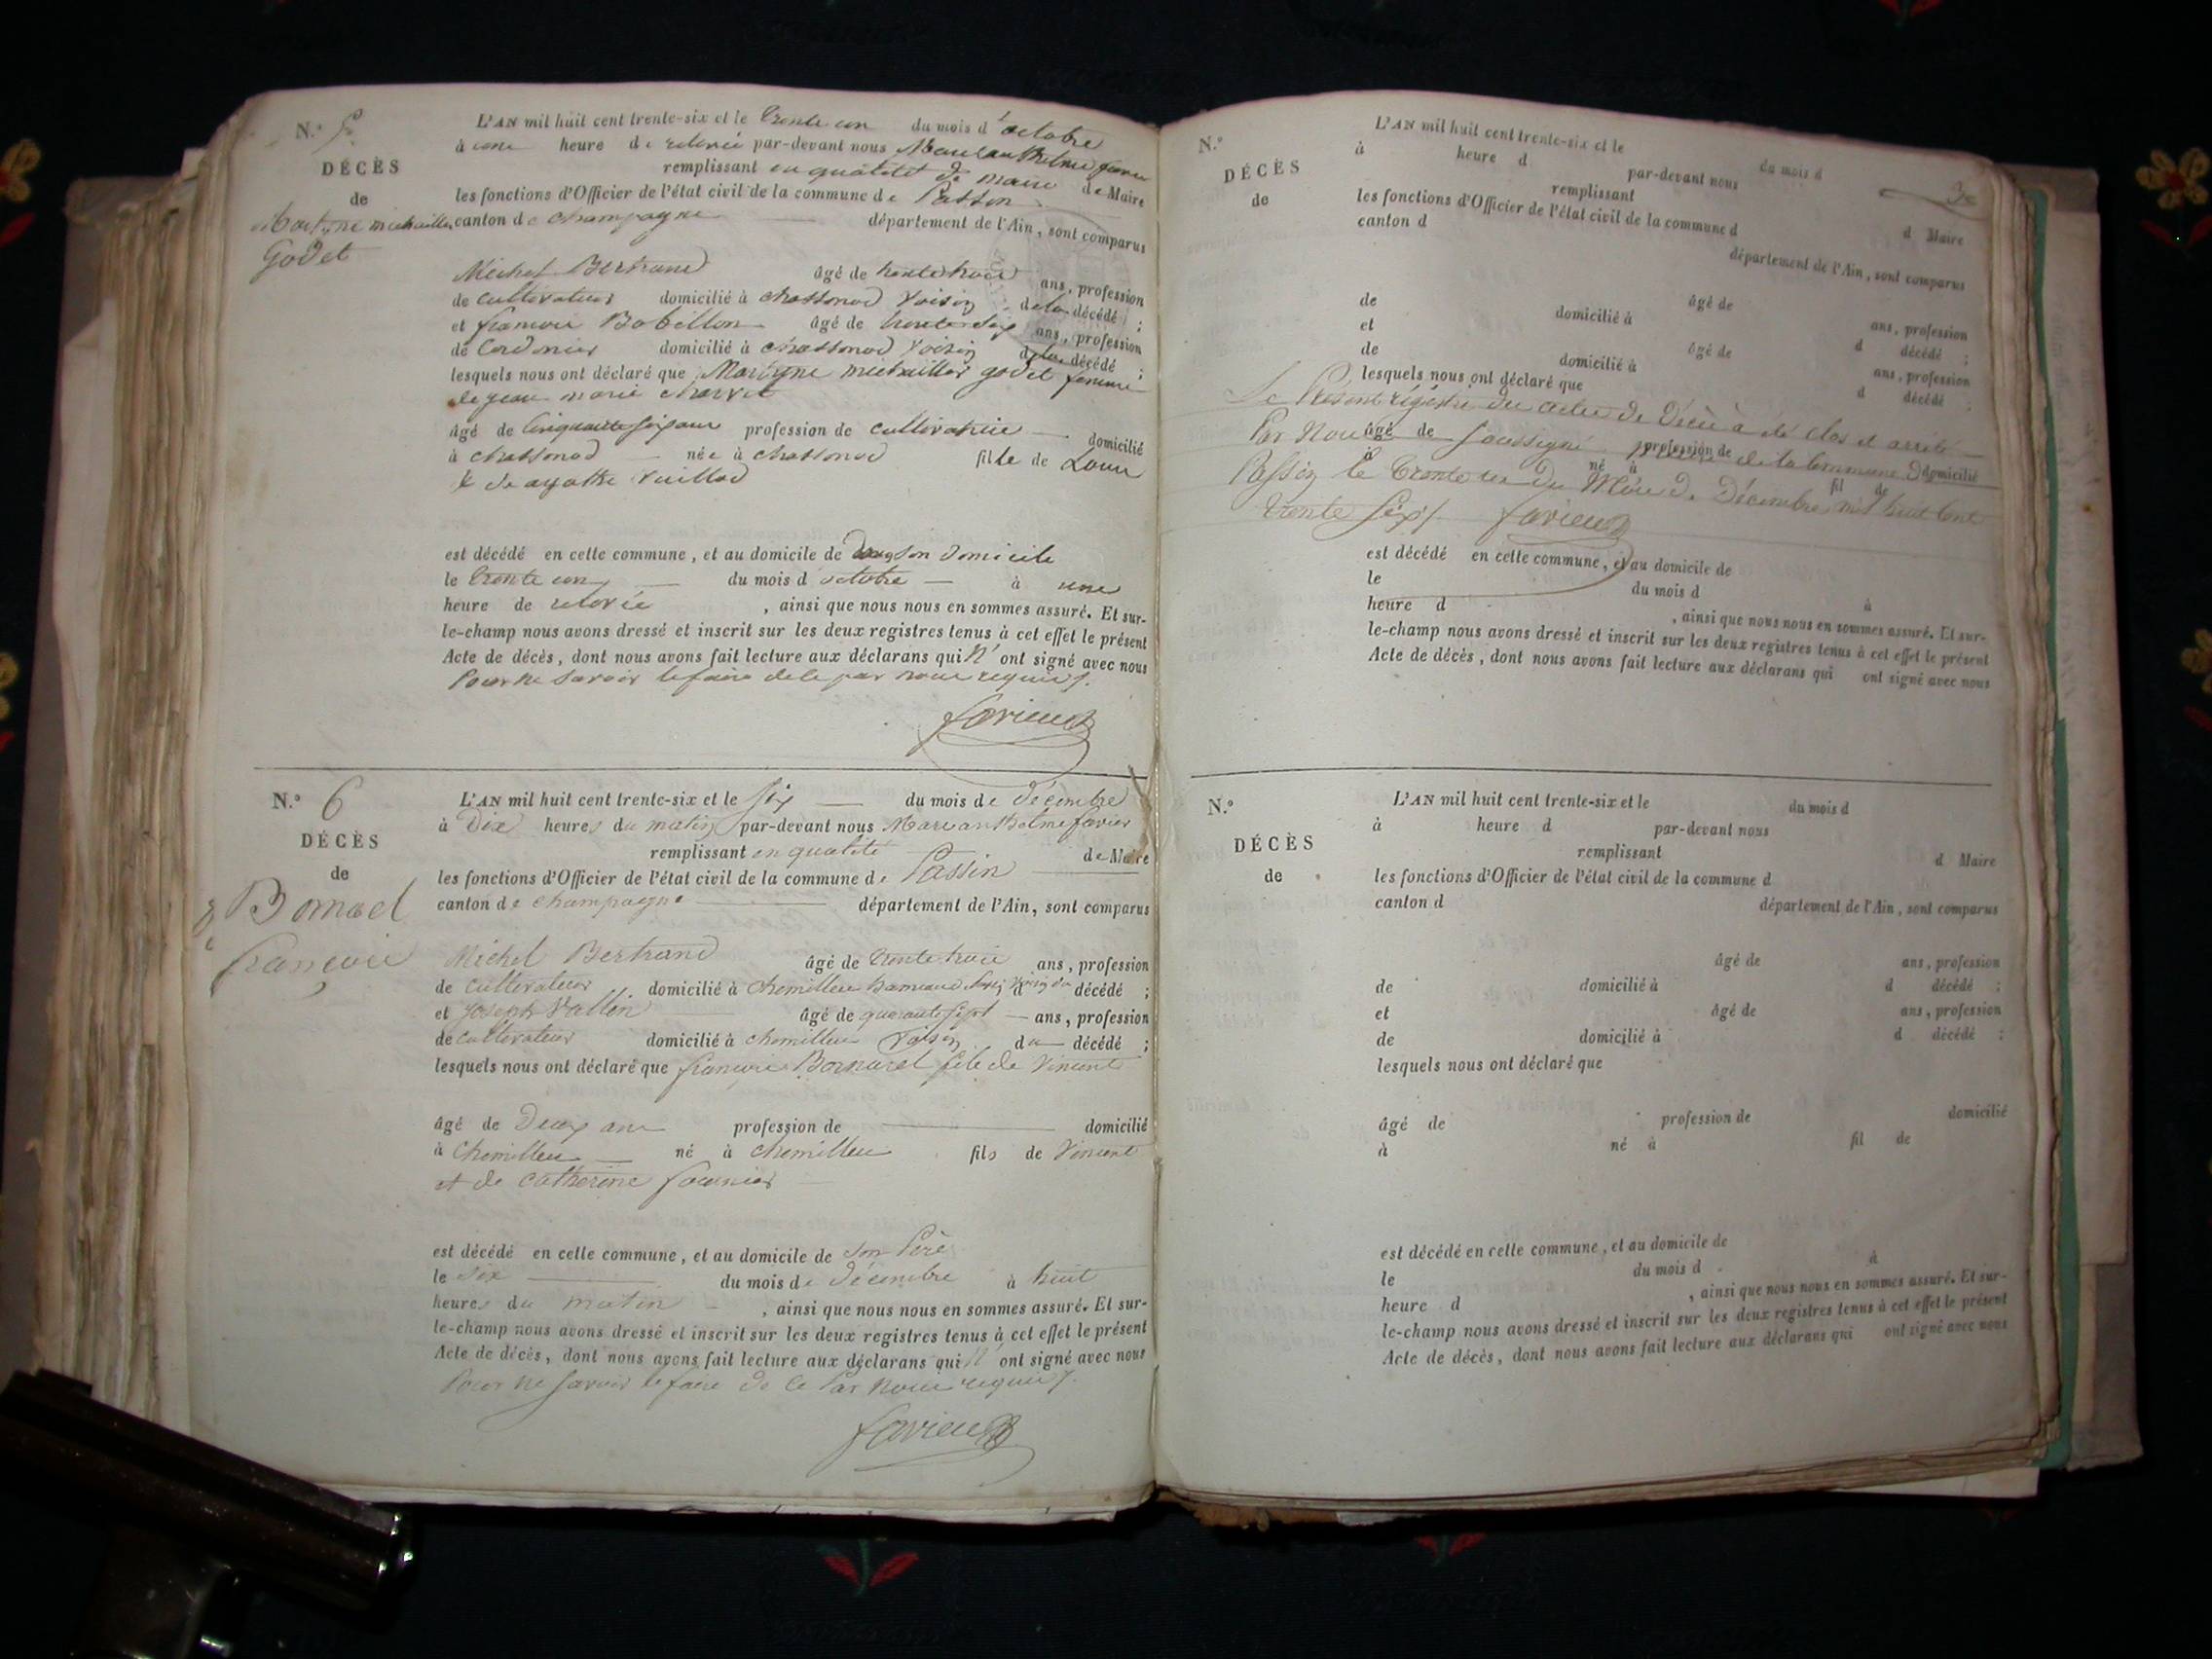 N.° 5
DÉCÈS
de
Godet
L'AN mil huit cent trente-six et le trente un du mois d'octobre
à une heure de relevée par-devant nous
remplissant en qualité de maire de Maire
les fonctions d'Officier de l'état civil de la commune de Passin
canton de champagne département de l'Ain, sont comparus
Michel Bertrand âgé de trente trois ans, profession
de cultivateur domicilié à chassonod voisin de la décédé ;
et francois Bobillon âgé de trente six ans, profession
de Cordonier domicilié à chassonod voisin de la décédé ;
lesquels nous ont déclaré que godet femme
de jean marie
âgé de Cinquante six ans profession de domicilié
à chassonod née à chassonod fille de Louis
& de agathe
est décédé en cette commune, et au domicile de son domicile
le trente un du mois d'octobre à une
heure de relevée , ainsi que nous nous en sommes assuré. Et sur-
le-champ nous avons dressé et inscrit sur les deux registres tenus à cet effet le présent
Acte de décès, dont nous avons fait lecture aux déclarans qui n'ont signé avec nous
Pour ne savoir le faire de ce par nous requis /.
N.° 6
DÉCÈS
de
francois
L'AN mil huit cent trente-six et le six du mois de décembre
à Dix heures du matin par-devant nous
remplissant en qualité de Maire
les fonctions d'Officier de l'état civil de la commune de Passin
canton de champagne département de l'Ain, sont comparus
Michel Bertrand âgé de trente trois ans, profession
de cultivateur domicilié à chemillieu voisin du décédé ;
et Joseph Vallin âgé de quarante sept ans, profession
de cultivateur domicilié à chemillieu voisin du décédé ;
lesquels nous ont déclaré que francois de Vincent
âgé de Deux ans profession de domicilié
à Chemillieu né à chemillieu fils de Vincent
et de catherine fournier
est décédé en cette commune, et au domicile de son Père
le six du mois de décembre à huit
heures du matin , ainsi que nous nous en sommes assuré. Et sur-
le-champ nous avons dressé et inscrit sur les deux registres tenus à cet effet le présent
Acte de décès, dont nous avons fait lecture aux déclarans qui n'ont signé avec nous
Pour ne savoir le faire de ce Par nous requis /.
N.°
DÉCÈS
de
L'AN mil huit cent trente-six et le du mois d
à heure d par-devant nous
remplissant d Maire
les fonctions d'Officier de l'état civil de la commune d
canton d département de l'Ain, sont comparus
âgé de ans, profession
de domicilié à d décédé ;
et âgé de ans, profession
de domicilié à d décédé ;
lesquels nous ont déclaré que
Le Présent régistre des actes de Décès a été clos et arrêté
Par Nous soussigné maire de la Commune de
Passin le trente un du Mois de Décembre mil huit Cent
trente six /.
âgé de profession de domicilié
à né à fil de
est décédé en cette commune, et au domicile de
le du mois d à
heure d , ainsi que nous nous en sommes assuré. Et sur-
le-champ nous avons dressé et inscrit sur les deux registres tenus à cet effet le présent
Acte de décès, dont nous avons fait lecture aux déclarans qui ont signé avec nous
N.°
DÉCÈS
de
L'AN mil huit cent trente-six et le du mois d
à heure d par-devant nous
remplissant d Maire
les fonctions d'Officier de l'état civil de la commune d
canton d département de l'Ain, sont comparus
âgé de ans, profession
de domicilié à d décédé ;
et âgé de ans, profession
de domicilié à d décédé ;
lesquels nous ont déclaré que
âgé de profession de domicilié
à né à fil de
est décédé en cette commune, et au domicile de
le du mois d à
heure d , ainsi que nous nous en sommes assuré. Et sur-
le-champ nous avons dressé et inscrit sur les deux registres tenus à cet effet le présent
Acte de décès, dont nous avons fait lecture aux déclarans qui ont signé avec nous